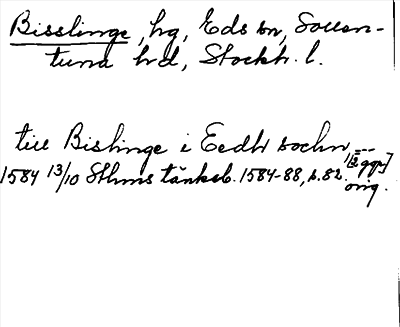 Bisslinge, hg, Eds sn, Sollen-
tuna hd, Stockh. l.
till Bislinge i Eedh sochn ---
[2 ggr]
1584 13/10 Sthms tänkeb. 1584-88, s. 82. orig.